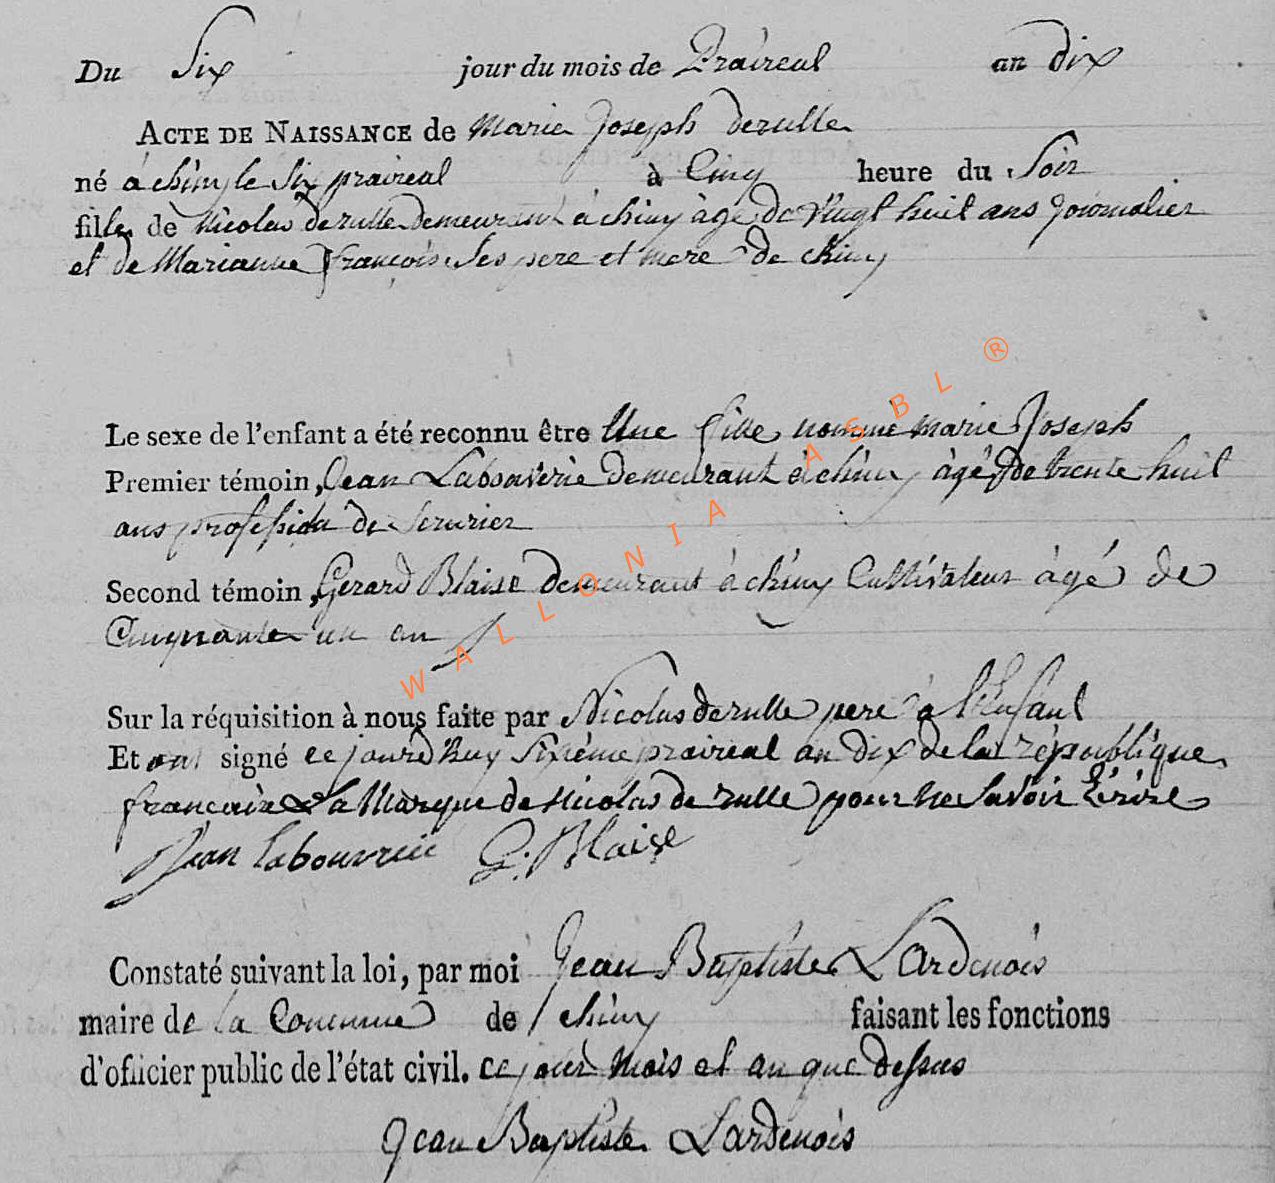 Du Six jour du mois de Prairéal an dix
ACTE DE NAISSANCE de Marie Joseph derulle
né à chiny le Six prairéal à Cinq heure du Soir
fille de Nicolas derulle demeurant à chiny àgé de Vingt huit ans Journalier
et de Marianne françois Ses pere et mere de chiny
Le sexe de l'enfant a été reconnu être Une fille nommé marie Joseph
Premier témoin, Jean Labouverie demeurant à chiny àgé de trente huit
ans profession de Serurier
Second témoin, Gerard Blaise demeurant à chiny Cultivateur àgé de
Cinquante un an
Sur la réquisition à nous faite par Nicolas derulle pere à l'Enfant
Et ont signé ce jourd'huy Sixiéme prairéal an dix de la république
francaise & la Marque de Nicolas de rulle pour ne Savoir Ecrire
Jean Labouvrie G. Blaise
Constaté suivant la loi, par moi Jean Baptiste Lardenois
maire de la Commune de chiny faisant les fonctions
d'officier public de l'état civil. ce jour mois et an que dessus
Jean Baptiste Lardenois
WALLONIA ASBL ®